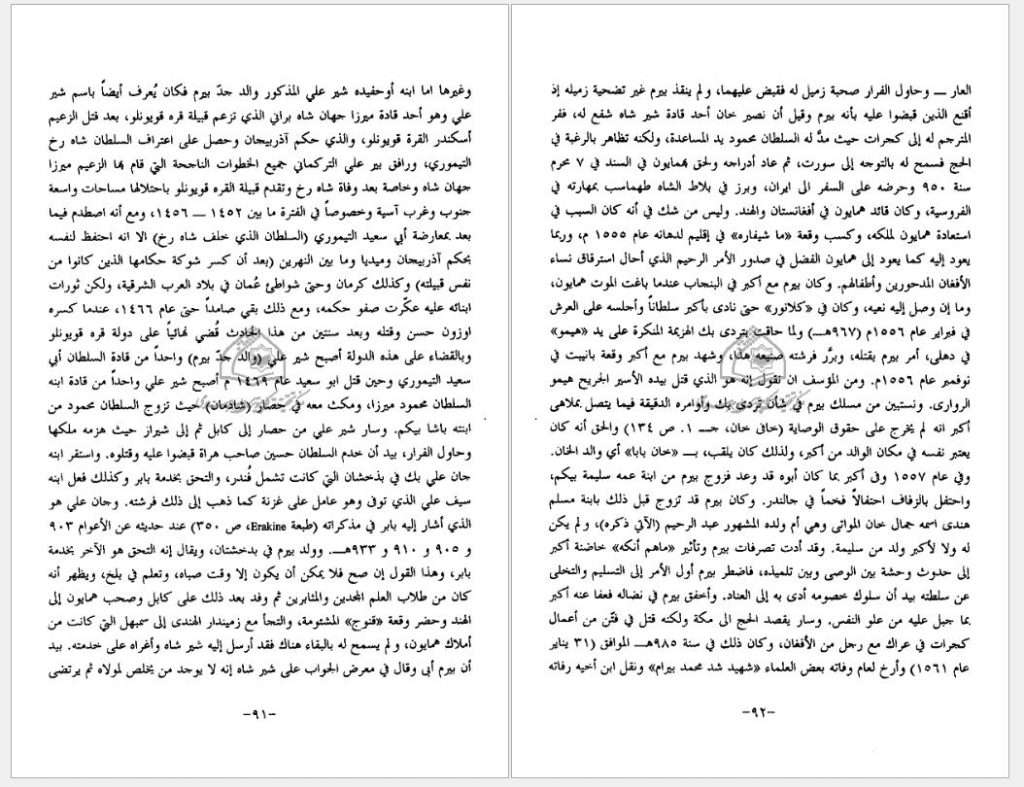 وغيرها اما ابنه أوحفيده شير علي المذكور والد جدّ بيرم فكان يُعرف أيضاً باسم شير
علي وهو أحد قادة ميرزا جهان شاه براني الذي تزعم قبيلة قره قويونلو، بعد قتل الزعيم
أسكندر القرة قويونلو، والذي حكم آذربيجان وحصل على اعتراف السلطان شاه رخ
التيموري، ورافق بير علي التركماني جميع الخطوات الناجحة التي قام بها الزعيم ميرزا
جهان شاه وخاصة بعد وفاة شاه رخ وتقدم قبيلة القره قويونلو باحتلالها مساحات واسعة
جنوب وغرب آسية وخصوصاً في الفترة ما بين ١٤٥٢ — ١٤٥٦، ومع أنه اصطدم فيما
بعد بمعارضة أبي سعيد التيموري (السلطان الذي خلف شاه رخ) الا انه احتفظ لنفسه
بحكم آذربيجان وميديا وما بين النهرين (بعد أن كسر شوكة حكامها الذين كانوا من
نفس قبيلته) وكذلك كرمان وحتى شواطئ عُمان في بلاد العرب الشرقية، ولكن ثورات
ابنائه عليه عكّرت صفو حكمه، ومع ذلك بقي صامداً حتى عام ١٤٦٦، عندما كسره
اوزون حسن وقتله وبعد سنتين من هذا الحادث قُضي نهائياً على دولة قره قويونلو
وبالقضاء على هذه الدولة أصبح شير علي (والد جدّ بيرم) واحداً من قادة السلطان أبي
سعيد التيموري وحين قتل ابو سعيد عام ١٤٦٩ م أصبح شير علي واحداً من قادة ابنه
السلطان محمود ميرزا، ومكث معه في حصار (شادمان) حيث تزوج السلطان محمود من
ابنته باشا بيكم. وسار شير علي من حصار إلى كابل ثم إلى شيراز حيث هزمه ملكها
وحاول الفرار، بيد أن خدم السلطان حسين صاحب هراة قبضوا عليه وقتلوه. واستقر ابنه
جان علي بك في بذخشان التي كانت تشمل قُندر، والتحق بخدمة بابر وكذلك فعل ابنه
سيف علي الذي توفى وهو عامل على غزنة كما ذهب إلى ذلك فرشته. وجان علي هو
الذي أشار إليه بابر في مذكراته (طبعة Erakine، ص ٣٥٠) عند حديثه عن الأعوام ٩٠٣
و ٩٠٥ و ٩١٠ و ٩٣٣هـ. وولد بيرم في بدخشتان، ويقال إنه التحق هو الآخر بخدمة
بابر، وهذا القول إن صح فلا يمكن أن يكون إلا وقت صباه، وتعلم في بلخ، ويظهر أنه
كان من طلاب العلم المجدين والمثابرين ثم وفد بعد ذلك على كابل وصحب همايون إلى
الهند وحضر وقعة «قنوج» المشئومة، والتجأ مع زميندار الهندى إلى سمبهل التي كانت من
أملاك همايون، و لم يسمح له بالبقاء هناك فقد أرسل إليه شير شاه وأغراه على خدمته. بيد
أن بيرم أبى وقال في معرض الجواب على شير شاه إنه لا يوحد من يخلص لمولاه ثم يرتضى
-٩١-
العار — وحاول الفرار صحبة زميل له فقبض عليهما، ولم ينقذ بيرم غير تضحية زميله إذ
أقنع الذين قبضوا عليه بأنه بيرم وقيل أن نصير خان أحد قادة شير شاه شفع له، ففر
المترجم له إلى كجرات حيث مدَّ له السلطان محمود يد المساعدة، ولكنه تظاهر بالرغبة في
الحج فسمح له بالتوجه إلى سورت، ثم عاد أدراجه ولحق بهمايون في السند في ٧ محرم
سنة ٩٥٠ وحرضه على السفر الى ايران، وبرز في بلاط الشاه طهماسب بمهارته في
الفروسية، وكان قائد همايون في أفغانستان والهند. وليس من شك في أنه كان السبب في
استعادة همايون لملكه، وكسب وقعة «ما شيفاره» في إقليم لدهانه عام ١٥٥٥ م، وربما
يعود إليه كما يعود إلى همايون الفضل في صدور الأمر الرحيم الذي أحال استرقاق نساء
الأفغان المدحورين وأطفالهم. وكان بيرم مع أكبر في البنجاب عندما باغت الموت همايون،
وما إن وصل إليه نعيه، وكان في «كلانور» حتى نادى بأكبر سلطاناً وأجلسه على العرش
في فبراير عام ١٥٥٦م (٩٦٧هـ) ولما حاقت بتردى بك الهزيمة المنكرة على يد «هيمو»
في دهلى، أمر بيرم بقتله، وبرَّر فرشته صنيعه هذا، وشهد بيرم مع أكبر وقعة بانيبت في
نوفمبر عام ١٥٥٦م. ومن المؤسف ان تقول إنه هو الذي قتل بيده الأسير الجريح هيمو
الروارى. ونستبين من مسلك بيرم في شأن تردى بك وأوامره الدقيقة فيما يتصل بملاهى
أكبر انه لم يخرج على حقوق الوصاية (خافى خان، جـ ١. ص ١٣٤) والحق أنه كان
يعتبر نفسه في مكان الوالد من أكبر، ولذلك كان يلقب، بـ «خان بابا» أي والد الخان.
وفي عام ١٥٥٧ وفى أكبر بما كان أبوه قد وعد فزوج بيرم من ابنة عمه سليمة بيكم،
واحتفل بالزفاف احتفالاً فخماً في جالندر. وكان بيرم قد تزوج قبل ذلك بابنة مسلم
هندى اسمه جمال خان المواتى وهي أم ولده المشهور عبد الرحيم (الآتي ذكره)، ولم يكن
له ولا لأكبر ولد من سليمة. وقد أدت تصرفات بيرم وتأثير «ماهم أنكه» خاضنة أكبر
إلى حدوث وحشة بين الوصى وبين تلميذه، فاضطر بيرم أول الأمر إلى التسليم والتخلى
عن سلطته بيد أن سلوك خصومه أدى به إلى العناد. وأخفق بيرم في نضاله فعفا عنه أكبر
بما جبل عليه من علو النفس. وسار يقصد الحج الى مكة ولكنه قتل في فتّن من أعمال
كجرات في عراك مع رجل من الأفغان، وكان ذلك في سنة ٩٨٥هـ الموافق (٣١ يناير
عام ١٥٦١) وأرخ لعام وفاته بعض العلماء «شهيد شد محمد بيرام» ونقل ابن أخيه رفاته
-٩٢-